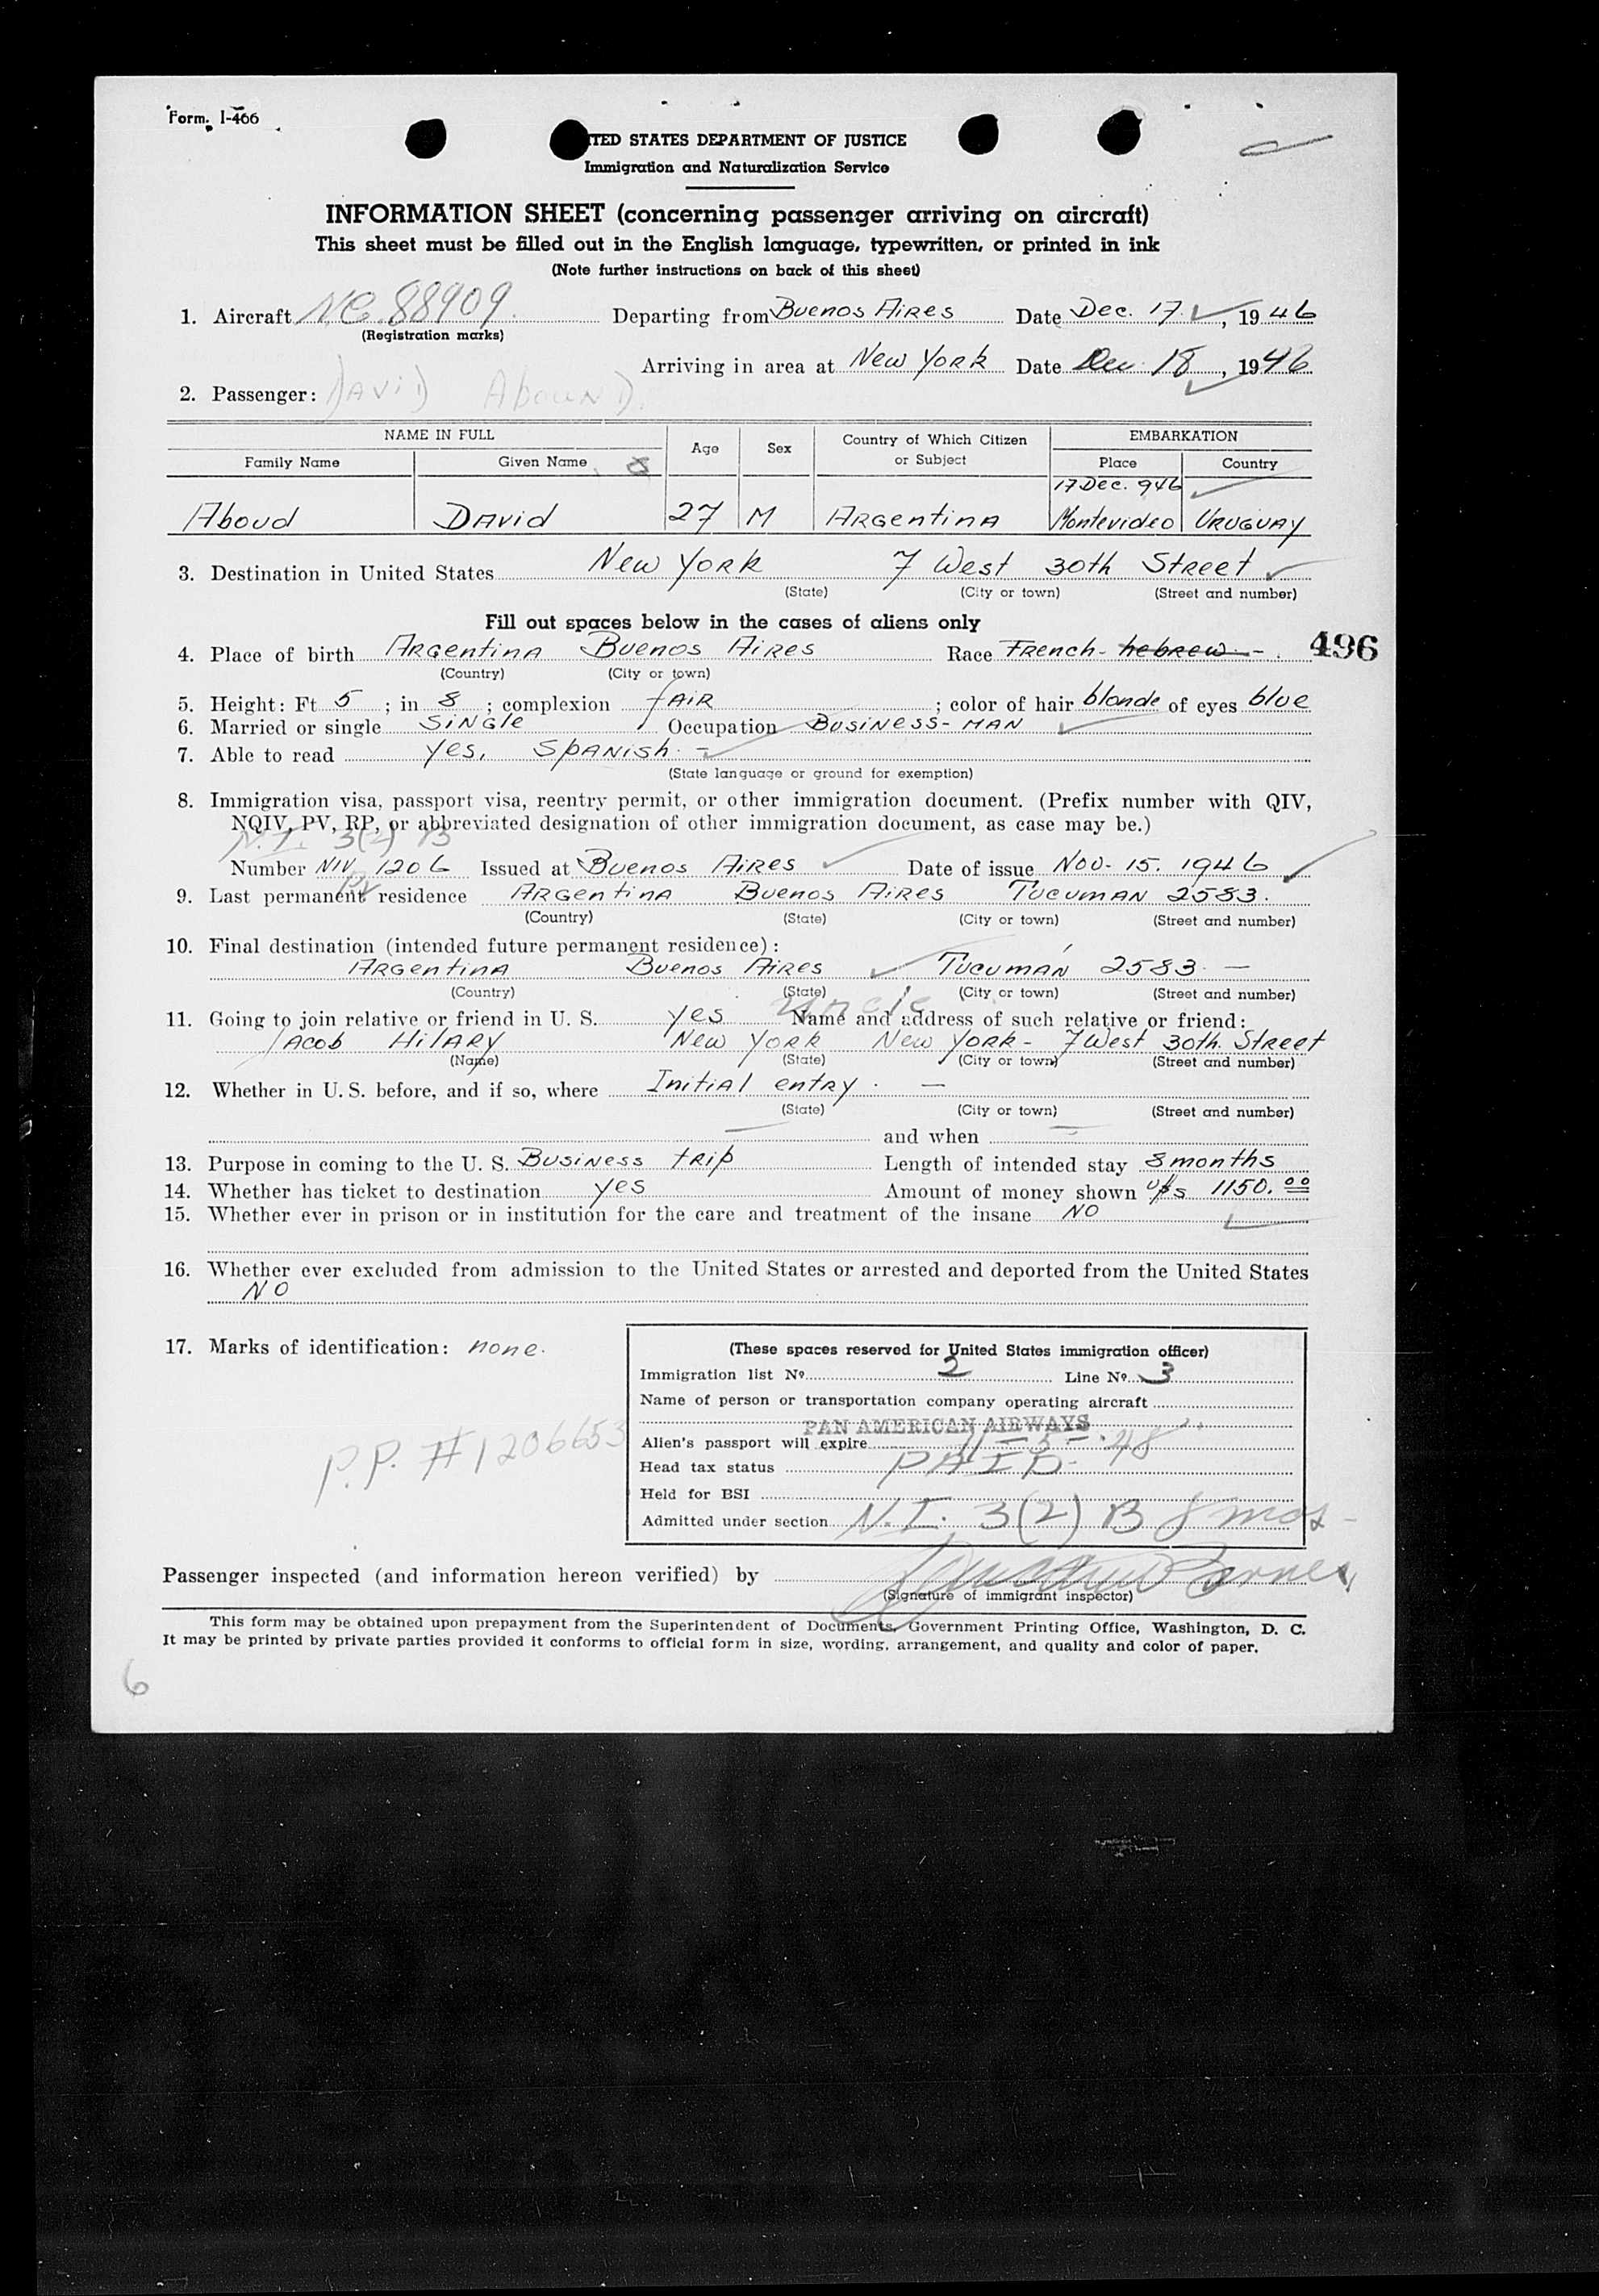 Form. I-466
ITED STATES DEPARTMENT OF JUSTICE
Immigration and Naturalization Service
INFORMATION SHEET (concerning passenger arriving on aircraft)
This sheet must be filled out in the English language, typewritten, or printed in ink
(Note further instructions on back of this sheet)
1. Aircraft N.C. 88909. Departing from Buenos Aires Date Dec. 17., 1946
(Registration marks)
Arriving in area at New York Date Dec 18, 1946
2. Passenger: DAVID ABOUND.
NAME IN FULL Age Sex Country of Which Citizen or Subject EMBARKATION
Family Name Given Name Place Country
17 Dec. 946
Aboud David 27 M Argentina Montevideo Uruguay
3. Destination in United States New York 7 West 30th Street
(State) (City or town) (Street and number)
Fill out spaces below in the cases of aliens only
4. Place of birth Argentina Buenos Aires Race French - hebrew - . 496
(Country) (City or town)
5. Height: Ft 5 ; in 8 ; complexion fair ; color of hair blonde of eyes blue
6. Married or single Single Occupation Business-man
7. Able to read yes, Spanish. -
(State language or ground for exemption)
8. Immigration visa, passport visa, reentry permit, or other immigration document. (Prefix number with QIV,
NQIV, PV, RP, or abbreviated designation of other immigration document, as case may be.)
N.I. 3(2) B
Number NIV 1206 Issued at Buenos Aires Date of issue Nov- 15. 1946
PV
9. Last permanent residence Argentina Buenos Aires Tucuman 2583.
(Country) (State) (City or town) (Street and number)
10. Final destination (intended future permanent residence):
Argentina Buenos Aires Tucumán 2583 -
(Country) (State) (City or town) (Street and number)
uncle
11. Going to join relative or friend in U. S. yes Name and address of such relative or friend:
Jacob Hilary New York New York - 7 West 30th. Street
(Name) (State) (City or town) (Street and number)
12. Whether in U. S. before, and if so, where Initial entry . -
(State) (City or town) (Street and number)
and when
13. Purpose in coming to the U. S. Business trip Length of intended stay 8 months
14. Whether has ticket to destination yes Amount of money shown U$s 1150.00
15. Whether ever in prison or in institution for the care and treatment of the insane NO
16. Whether ever excluded from admission to the United States or arrested and deported from the United States
NO
17. Marks of identification: none.
(These spaces reserved for United States immigration officer)
Immigration list No. 2 Line No. 3
Name of person or transportation company operating aircraft
PAN AMERICAN AIRWAYS
Alien's passport will expire 11-5-48
P.P. #1206653
Head tax status PAID-
Held for BSI
Admitted under section N.I. 3(2) B 8 mos -
Passenger inspected (and information hereon verified) by
(Signature of immigrant inspector)
This form may be obtained upon prepayment from the Superintendent of Documents, Government Printing Office, Washington, D. C.
It may be printed by private parties provided it conforms to official form in size, wording, arrangement, and quality and color of paper.
6